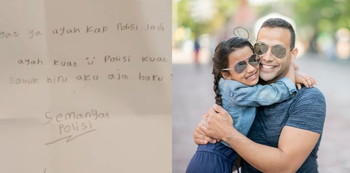 gas ya ayah kak Polisi Jadi
ayah kuat Polisi kuat
biru aku aja
Semangat
Polisi